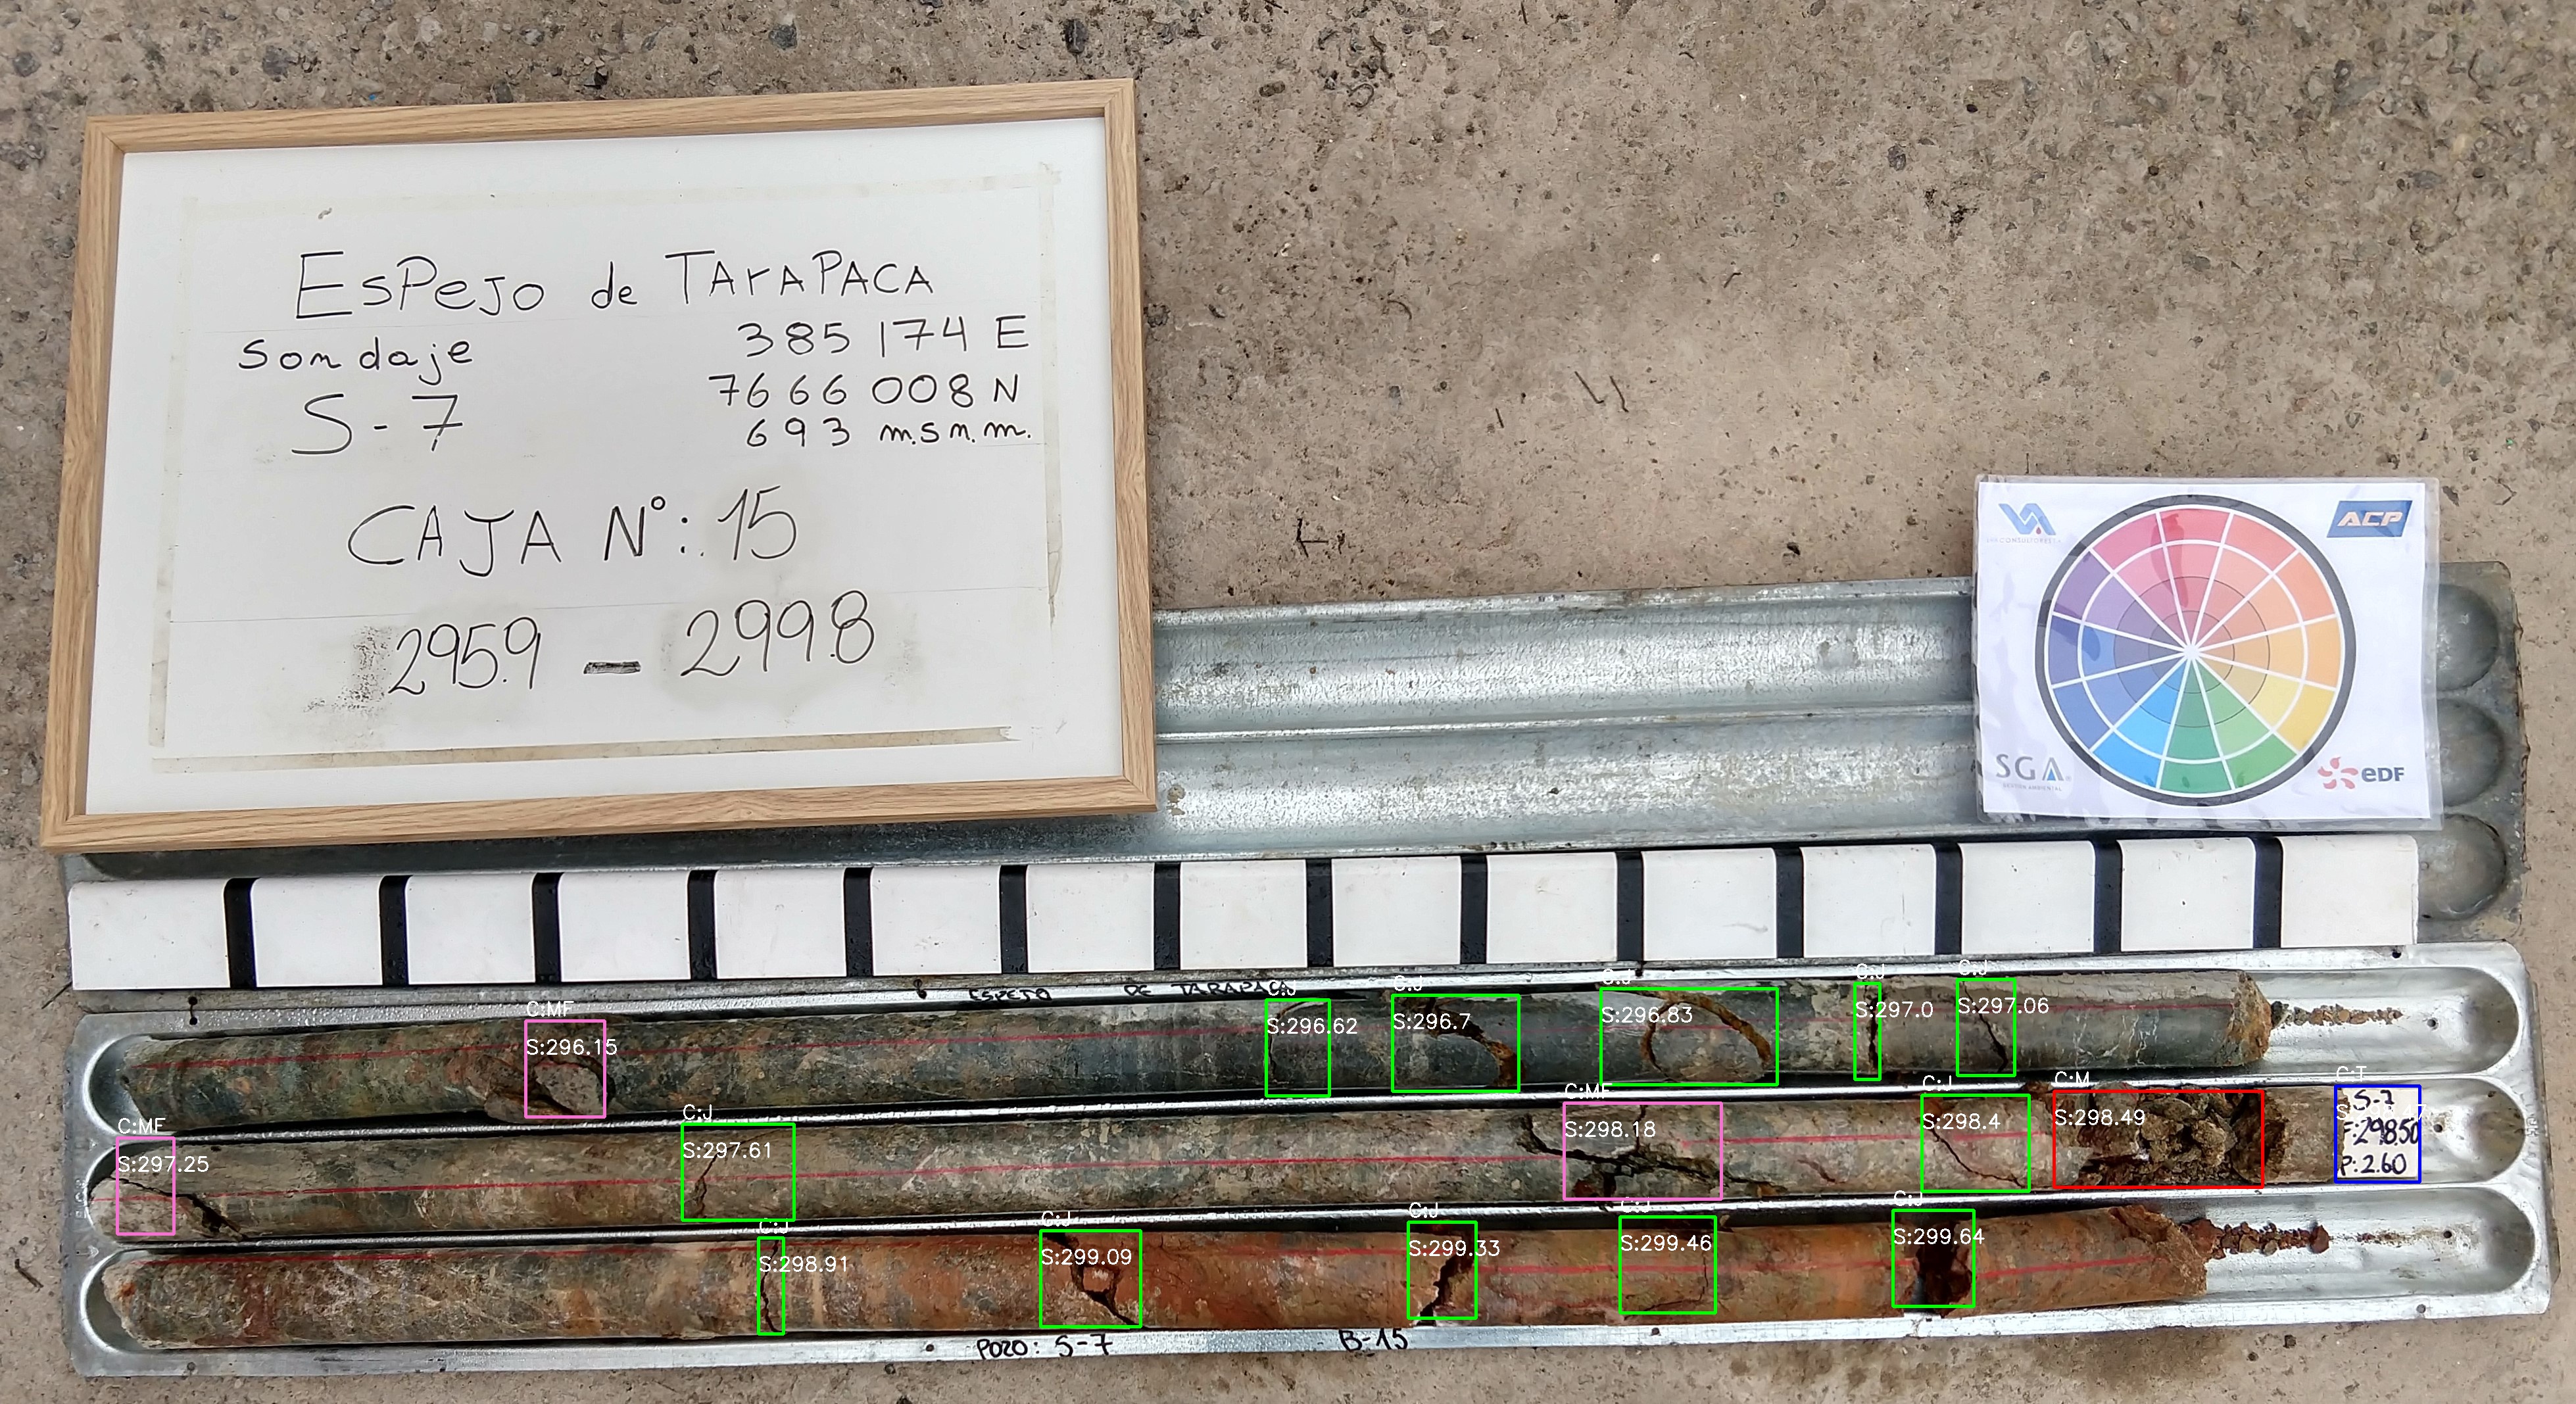 ESPEJO de TARAPACA
Sondaje
385 174 E
S-7
7666 008 N
693 m.s.n.m.
CAJA N°: 15
295.9 - 299.8
ACP
SGA
eDF
ESPEJO DE TARAPACA
C:MF
S:296.15
C:J
S:296.62
C:J
S:296.7
C:J
S:296.83
C:J
S:297.0
C:J
S:297.06
C:MF
S:297.25
C:J
S:297.61
C:MF
S:298.18
C:J
S:298.4
C:M
S:298.49
C:T
S-7
F:298.50
P:2.60
C:J
S:298.91
C:J
S:299.09
C:J
S:299.33
C:J
S:299.46
C:J
S:299.64
POZO: S-7 B-15